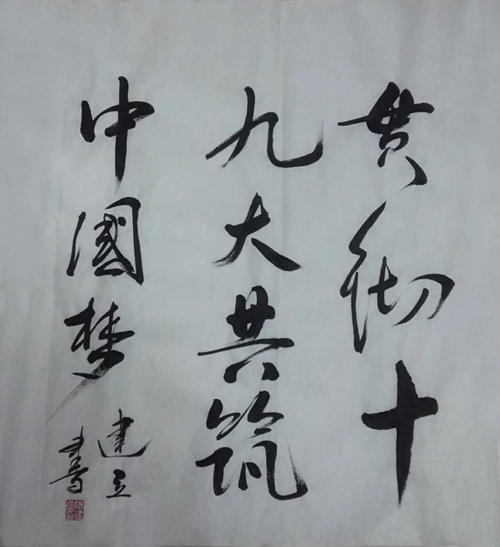 贯彻十
九大共筑
中國梦
建立
書